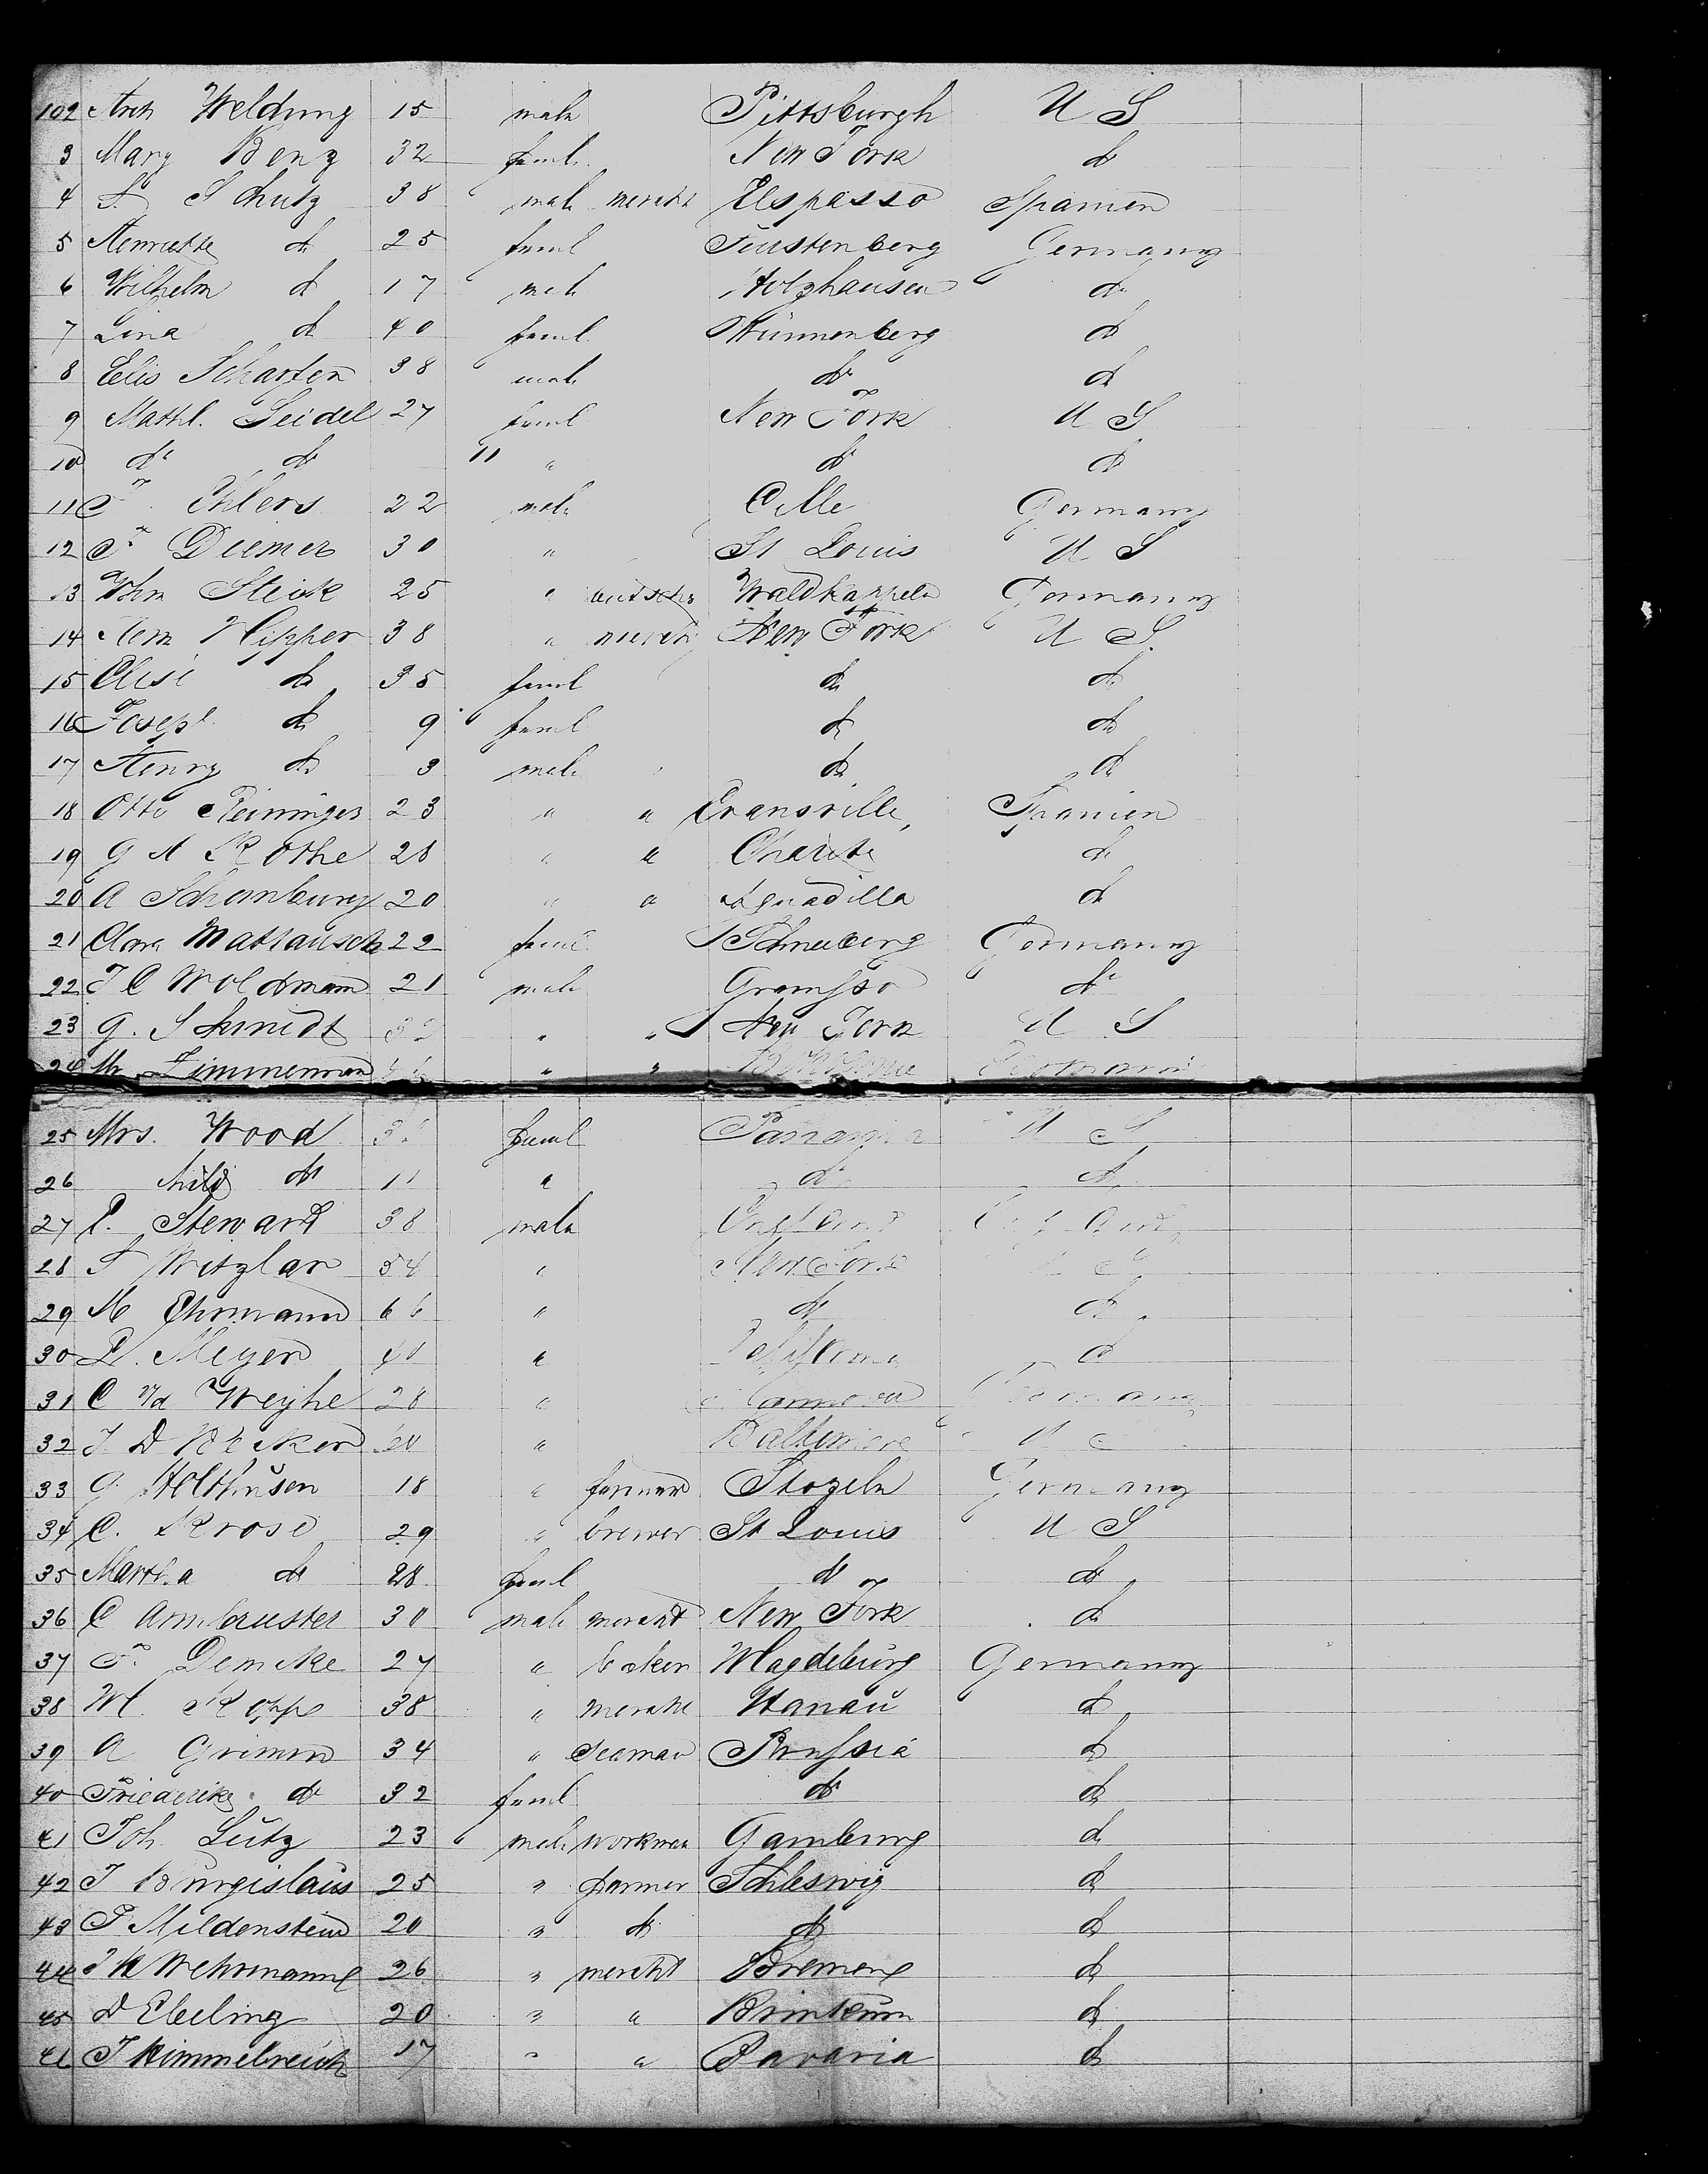 102 Weldung 15 male Pittsburgh U S
3 Mary Benz 32 feml New York do
4 S. Schutz 38 male mercht Elspasso Spanien
5 Henriette do 25 feml Fürstenberg Germany
6 Wilhelm do 17 male Holzhausen do
7 Lina do 40 feml Wünnenberg do
8 Elis Scharfen 38 male do do
9 Mathl. Seidel 27 feml New York U S
10 do do 11 " do do
11 F. Ehlers 22 male Celle Germany
12 F. Diemer 30 " St Louis U S
13 Whm Steick 25 " Waldkappeln Germany
14 Hipper 38 " mercht New York U S.
15 Elise do 35 feml do do
16 Joseph do 9 feml do do
17 Henry do 3 male do do
18 Otto Reininger 23 " " Evansville, Spanien
19 G A Rothe 28 " " do
20 A Schomburg 20 " " Aguadilla do
21 Clara Mattausch 22 feml Schneeberg Germany
22 J C Woldmann 21 male do
23 G. Schmidt " " New York U S
24 Mr Zimmermann " " Germany
25 Mrs. Wood feml Panama U S
26 child do 11 " do do
27 Steward 38 male England England
28 S Wetzlar 54 " New York U S
29 M Ehrmann 66 " do do
30 Meyer 40 " California do
31 C v/d Weyhe 28 " Hannover Germany
32 J. D Becker " Baltimore U S
33 G Holthusen 18 " farmer Germany
34 C. Krose 29 " brewer St Louis U S
35 Martha do 28 feml do do
36 C Armbruster 30 male mercht New York do
37 F. Demcke 27 " baker Magdeburg Germany
38 M. Kopp 38 " mercht Hanau do
39 A Grimm 34 " Seaman Prussia do
40 Friederike do 32 feml do do
41 Joh. Lütz 23 male workman Gamburg do
42 J Burgislaus 25 " farmer Schleswig do
43 P Mildenstein 20 " do do do
44 J H Wehrmann 26 " mercht Bremen do
45 D Ebeling 20 " " Brinkum do
46 J Himmelreich 17 " " Bavaria do